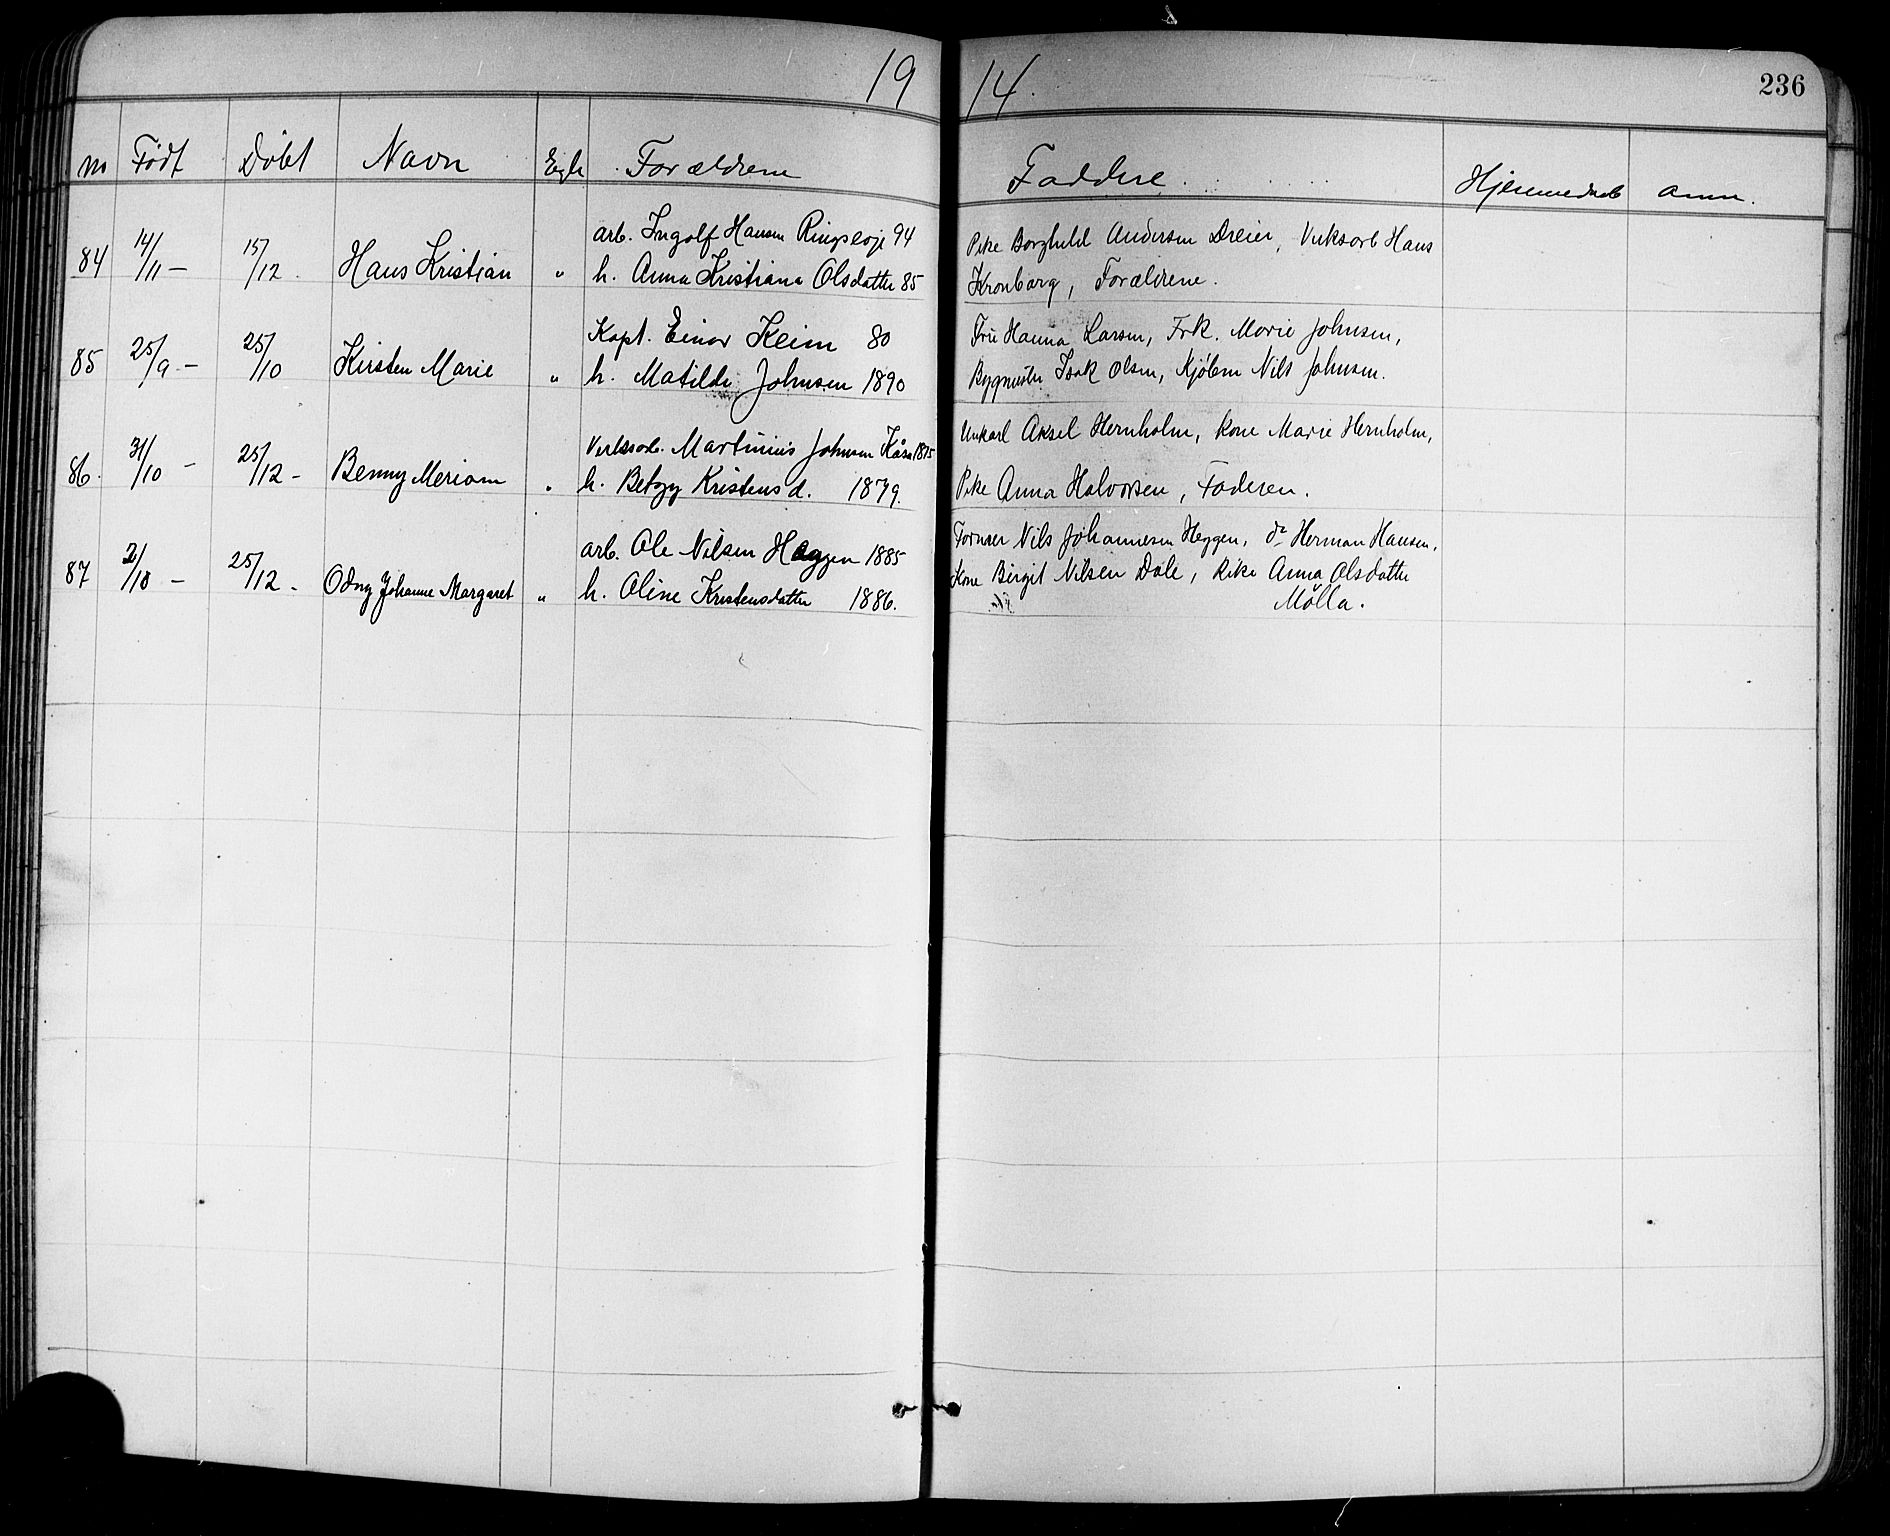 1914.
236
No Født Døbt Navn Egte Forældrene Faddere. Hjemmedøbt Anm.
84 14/11 - 15/12. Hans Kristian " arb. Ingolf Hansen 94
h. Anna Kristiane Olsdatter 85
Pike Borghild Andersen Dreier, Verksarb Hans
Kronborg, Forældrene.
85 25/9 - 25/10 Kirsten Marie " Kapt. Einar Keim 80
h. Matilde Johnsen 1890
Fru Hanna Larsen, Frk. Marie Johnsen,
Bygmester Isak Olsen, Kjøbm Nils Johnsen.
86. 31/10 - 25/12 - Benny Meriam " Verksarb. Martinius Johnsen Kåsa 1875
h. Betzy Kristensd. 1879.
Unkarl Aksel Hernholm, kone Marie Hernholm,
Pike Anna Halvorsen, Faderen.
87 2/10 - 25/12 - Odny Johanne Margaret " arb. Ole Nilsen Heggen 1885
h. Oline Kristensdatter 1886.
Former Nils Johannesen Heggen, do Herman Hansen,
Kone Birgit Nilsen Dale, Pike Anna Olsdatter
Mølla.